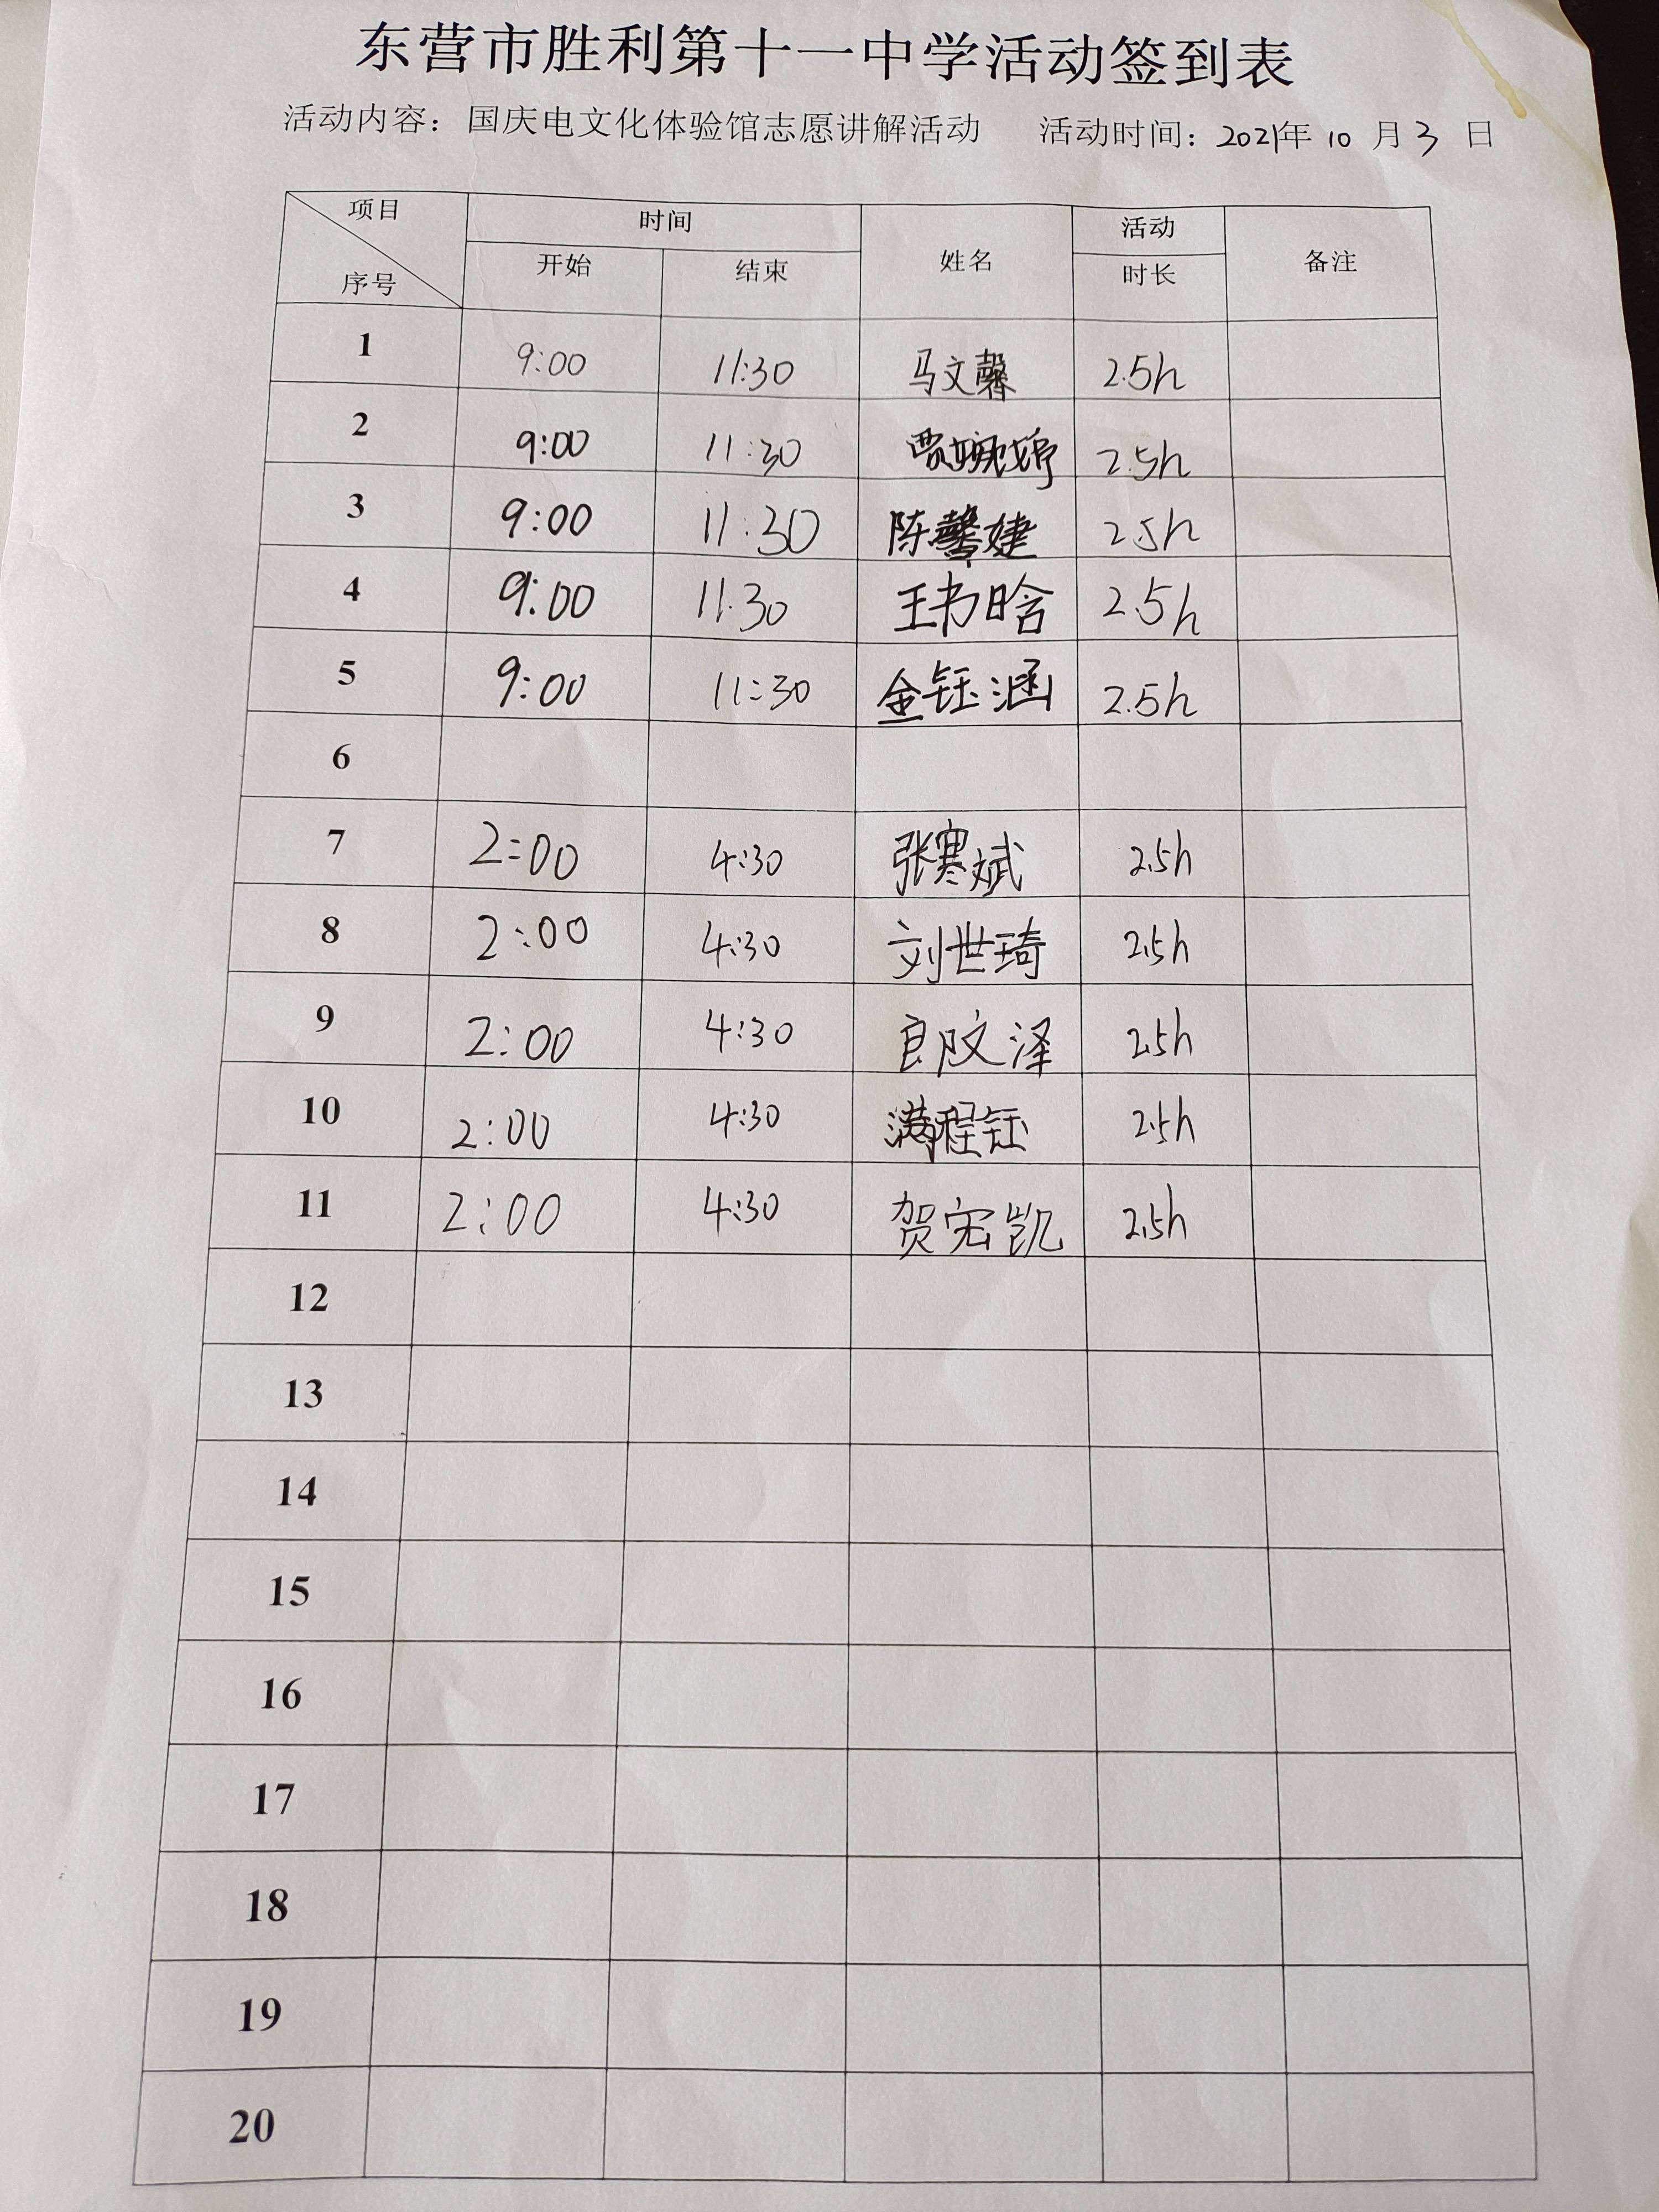 东营市胜利第十一中学活动签到表
活动内容：国庆电文化体验馆志愿讲解活动 活动时间：2021年 10 月 3 日
项目 时间 姓名 活动 备注
序号 开始 结束 时长
1 9:00 11:30 马文馨 2.5h
2 9:00 11:30 贾婉婷 2.5h
3 9:00 11:30 陈馨婕 2.5h
4 9:00 11:30 王书晗 2.5h
5 9:00 11:30 金钰涵 2.5h
6
7 2:00 4:30 张寒斌 2.5h
8 2:00 4:30 刘世琦 2.5h
9 2:00 4:30 泽 2.5h
10 2:00 4:30 满程钰 2.5h
11 2:00 4:30 贺宏凯 2.5h
12
13
14
15
16
17
18
19
20